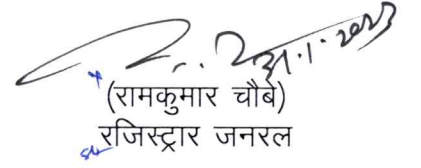 31.1.2023
(रामकुमार चौबे)
रजिस्ट्रार जनरल